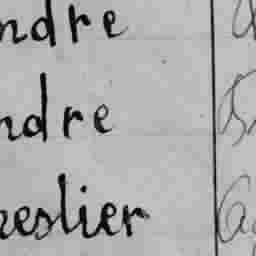 ndre
ndre
reslier